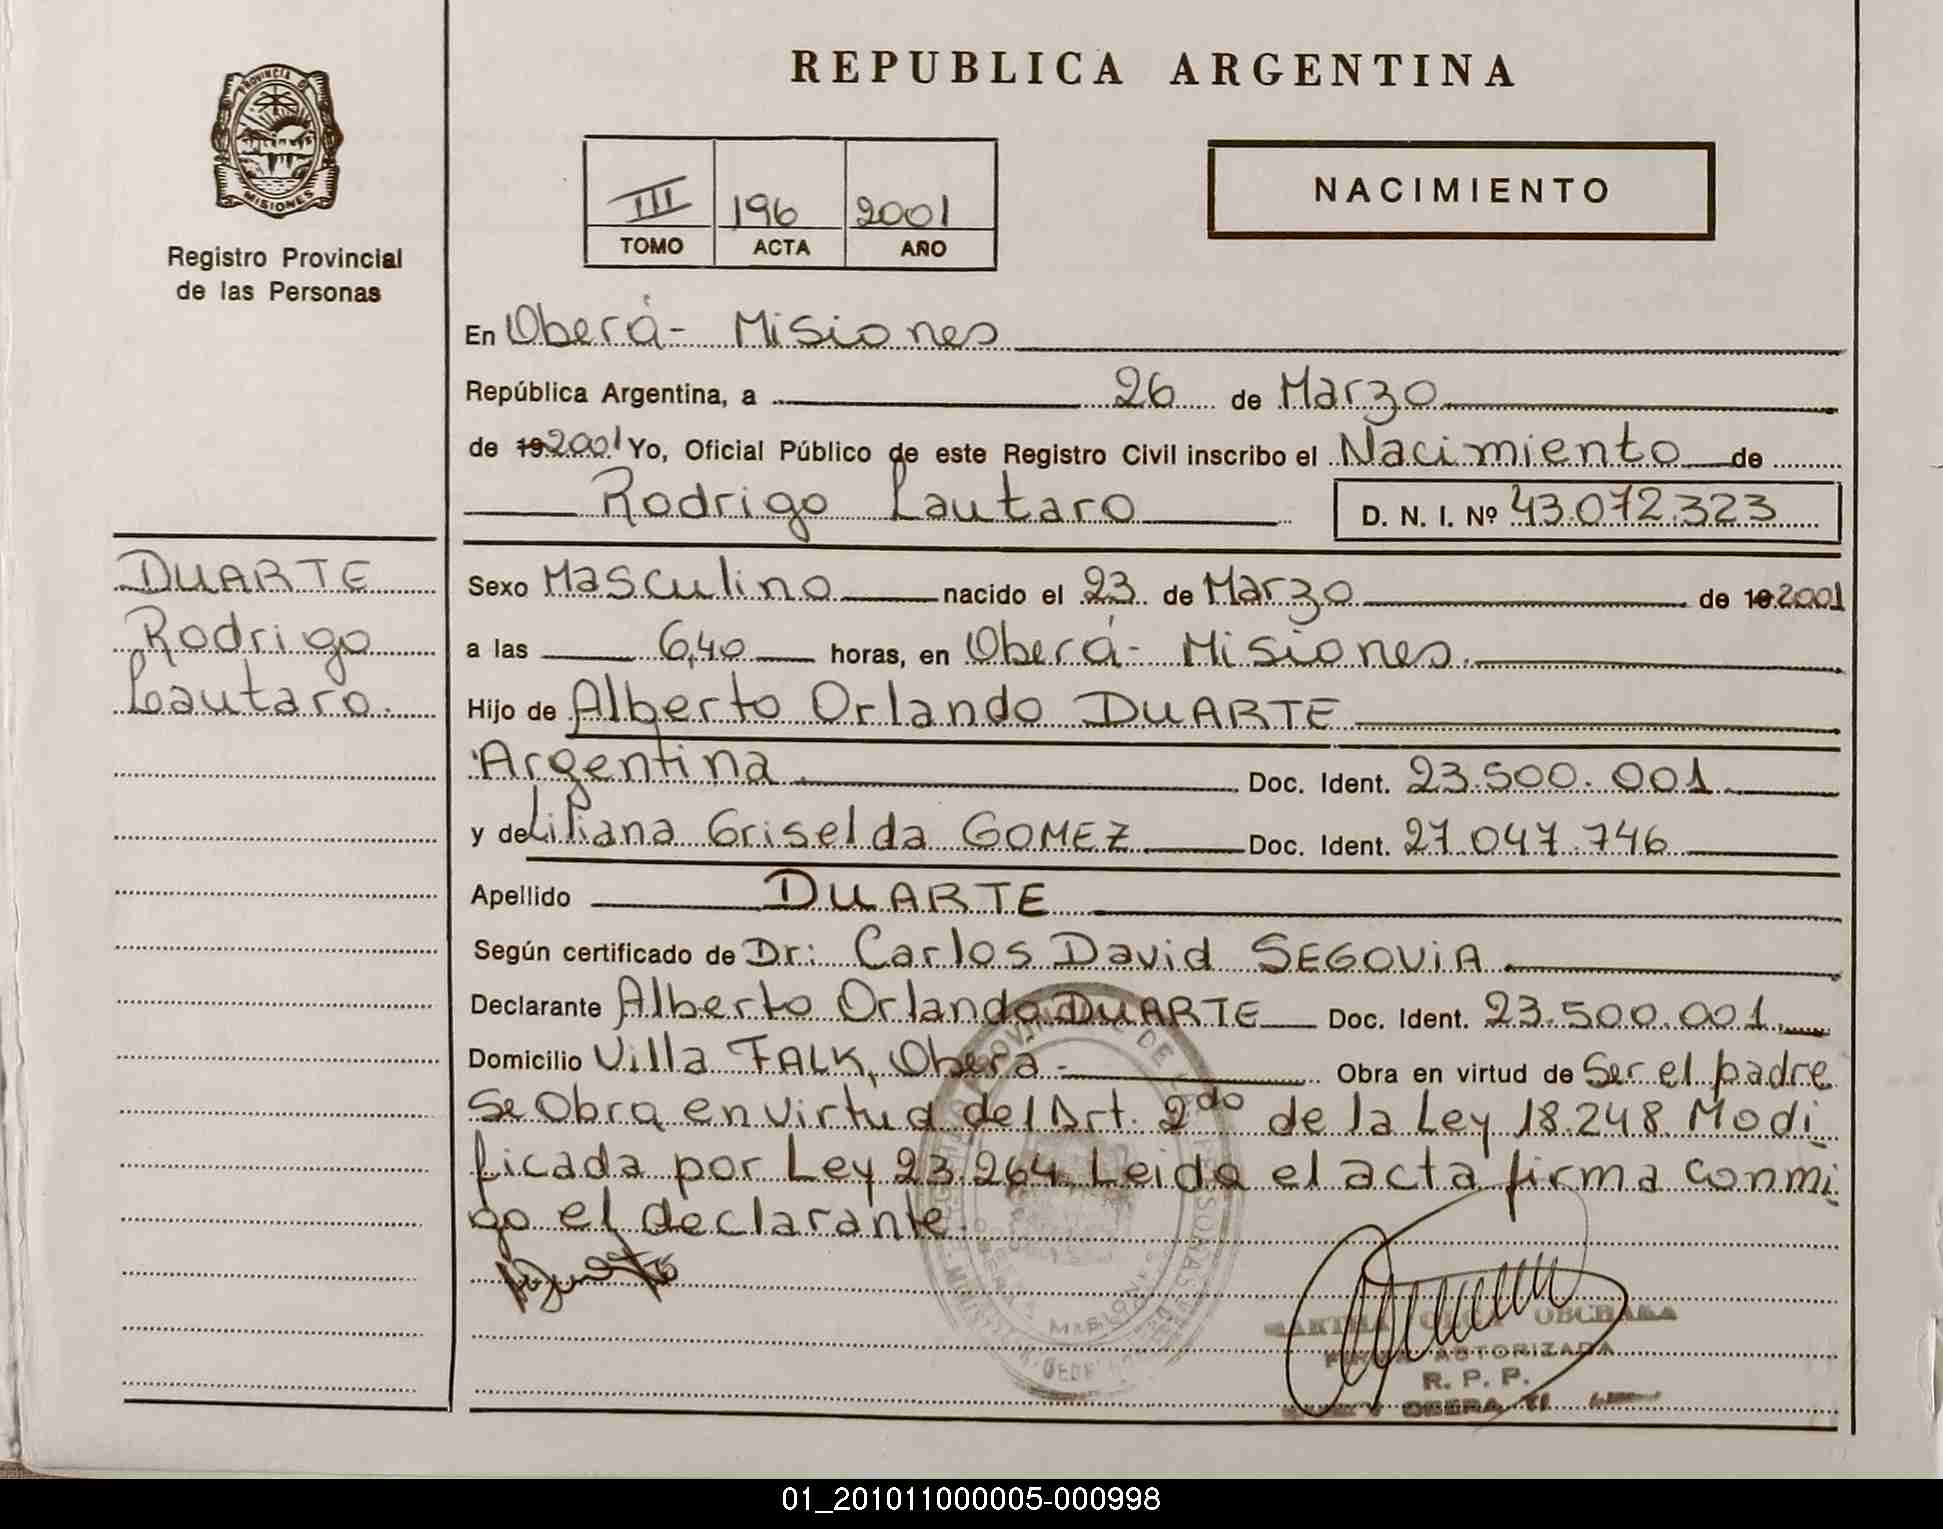 REPUBLICA ARGENTINA
PROVINCIA DE
MISIONES
Registro Provincial
de las Personas
III 196 2001
TOMO ACTA AÑO
NACIMIENTO
En Oberá- Misiones
República Argentina, a 26 de Marzo
de 19 2001 Yo, Oficial Público de este Registro Civil inscribo el Nacimiento de
Rodrigo Lautaro D. N. I. Nº 43.072.323
DUARTE
Rodrigo
Lautaro.
Sexo Masculino nacido el 23 de Marzo de 19 2001
a las 6,40 horas, en Oberá- Misiones.
Hijo de Alberto Orlando DUARTE
Argentina Doc. Ident. 23.500.001
y de Liliana Griselda GOMEZ Doc. Ident. 27.047.746
Apellido DUARTE
Según certificado de Dr: Carlos David SEGOVIA
Declarante Alberto Orlando DUARTE Doc. Ident. 23.500.001
Domicilio Villa FALK, Oberá - Obra en virtud de Ser el padre
Se Obra en virtud del Art. 2do de la Ley 18.248 Modi
ficada por Ley 23.264. Leida el acta firma conmi
go el declarante.
AUTORIZADA
R. P. P.
OBERA
01_201011000005-000998